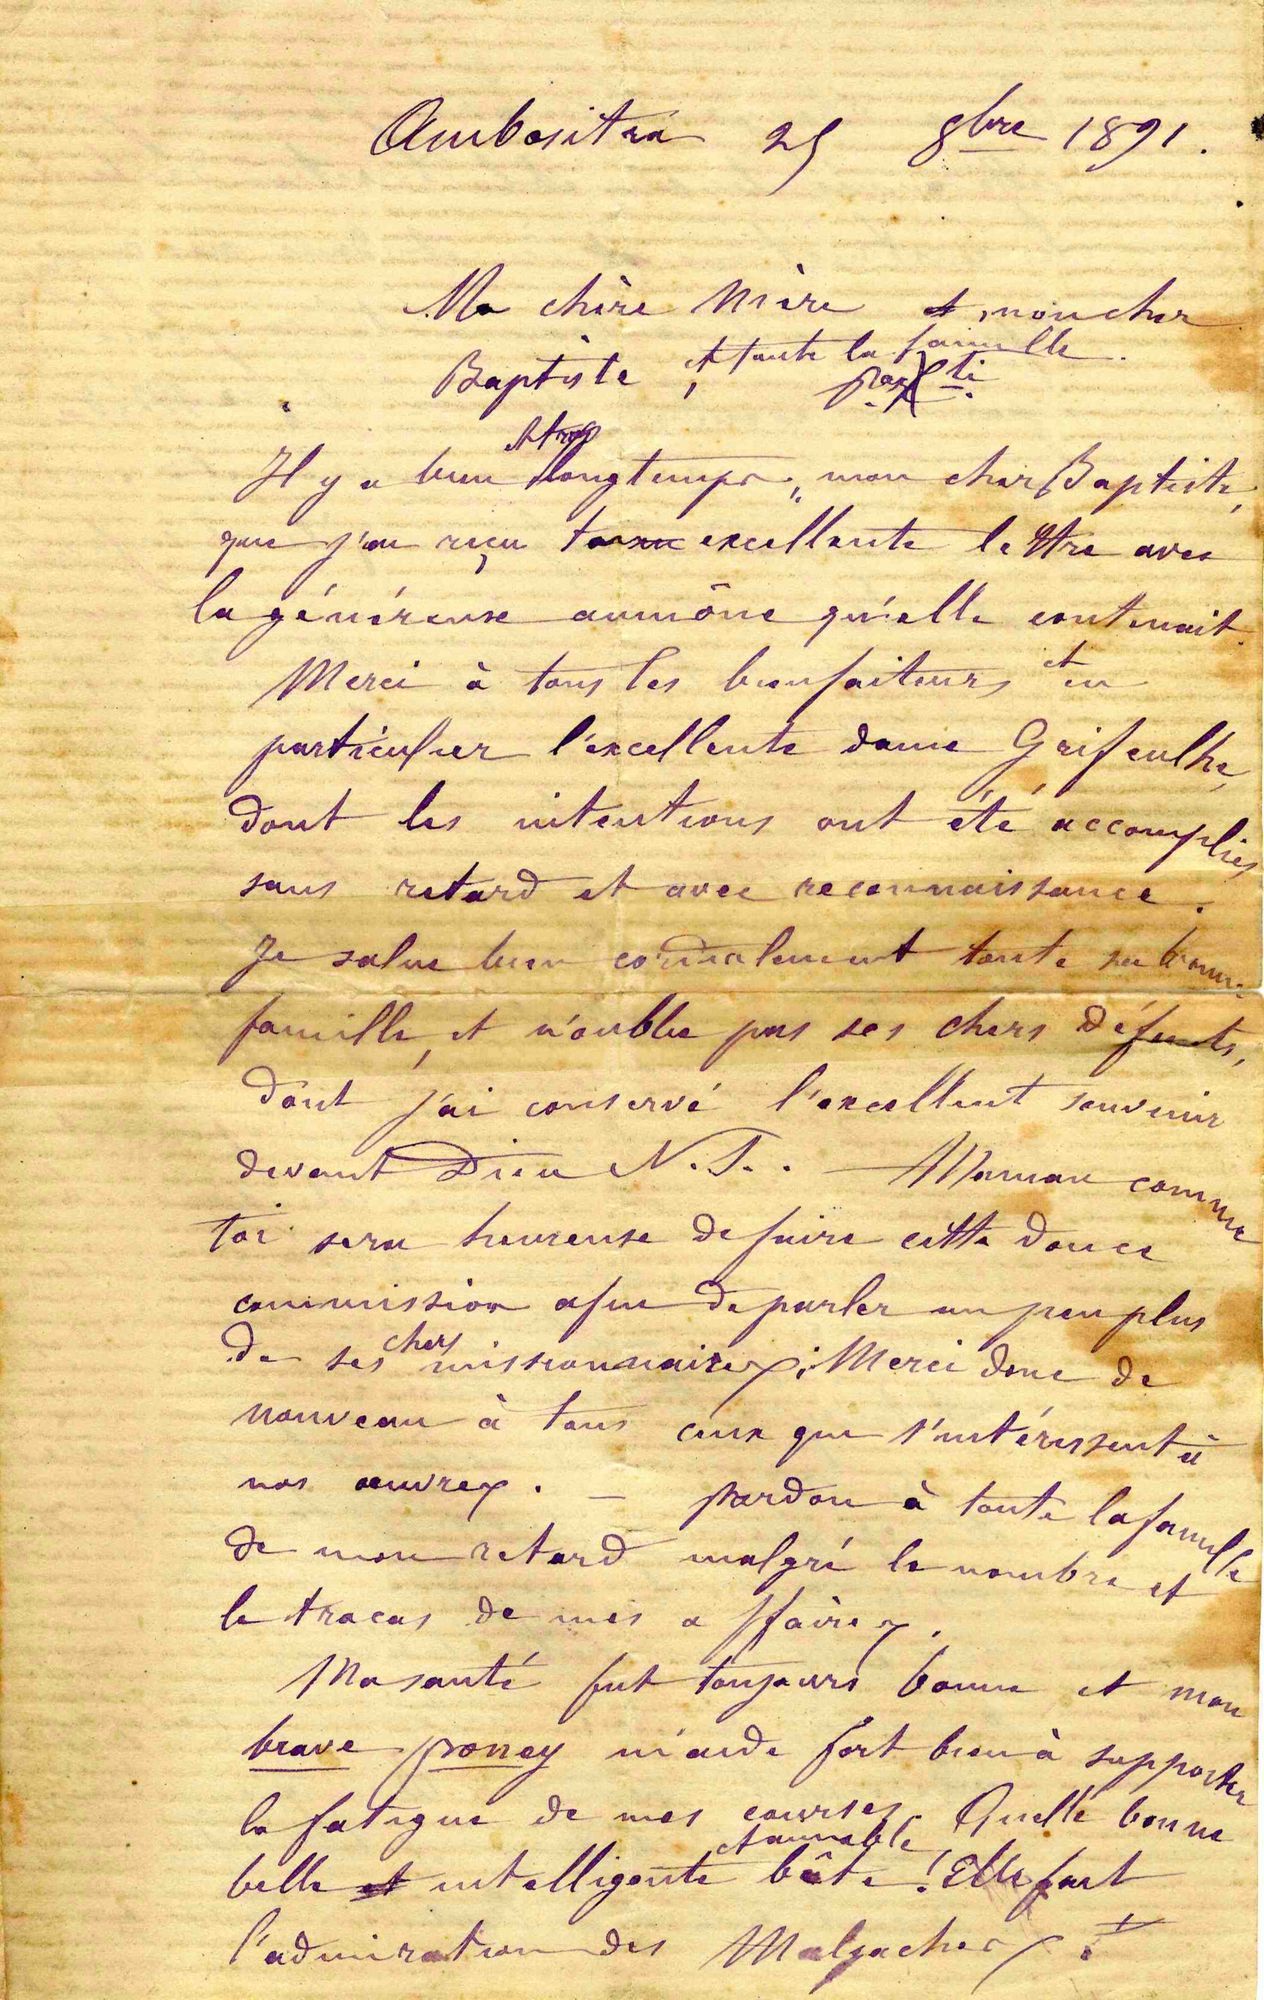 Ambositra 25 8bre 1891.
Ma chère Mère et mon cher
Baptiste, et toute la famille.
Pax Xti.
Il y a bien et trop longtemps, mon cher Baptiste,
que j'ai reçu ton excellente lettre avec
la généreuse aumône qu'elle contenait.
Merci à tous les bienfaiteurs et en
particulier l'excellente dame Grifeulhe,
dont les intentions ont été accomplies
sans retard et avec reconnaissance.
Je salue bien cordialement toute sa bonne
famille, et n'oublie pas ses chers défunts,
dont j'ai conservé l'excellent souvenir
devant Dieu N. S. . — Maman comme
toi sera heureuse de faire cette douce
commission afin de parler un peu plus
de ses chers missionnaires; Merci donc de
nouveau à tous ceux que s'intéressent à
nos œuvres. — pardon à toute la famille
de mon retard malgré le nombre et
le tracas de mes affaires.
Ma santé fut toujours bonne et mon
brave poney m'aide fort bien à supporter
la fatigue de mes courses. Quelle bonne
belle et intelligente et aimable bête! Elle fait
l'admiration des Malgaches.